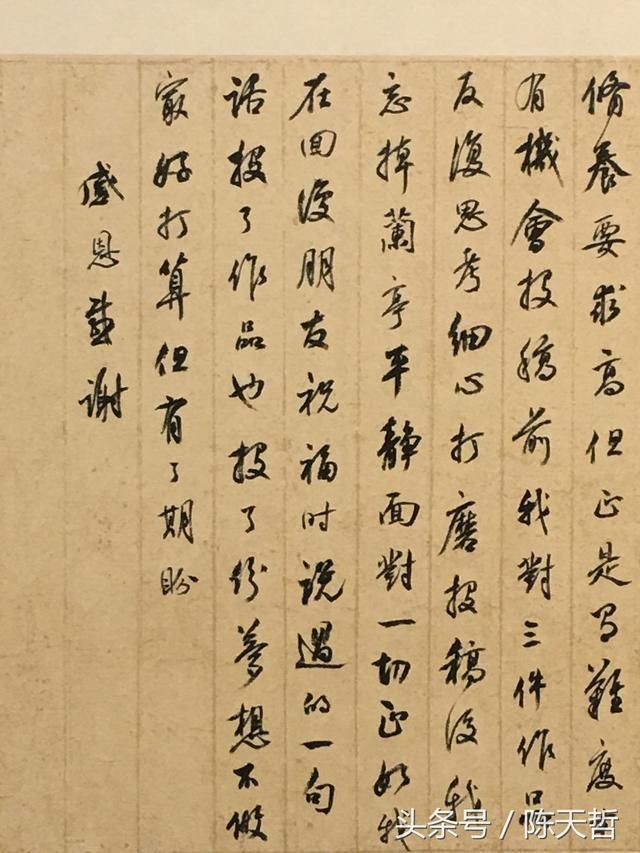 脩養要求高但正是難度
有機會投稿前我對三件作品
反復思考細心打磨投稿後我
忘掉蘭亭平靜面對一切正如我
在回復朋友祝福时说過的一句
话投了作品也投了份夢想不做
最好打算但有了期盼
感恩感谢
头条号 / 陈天哲